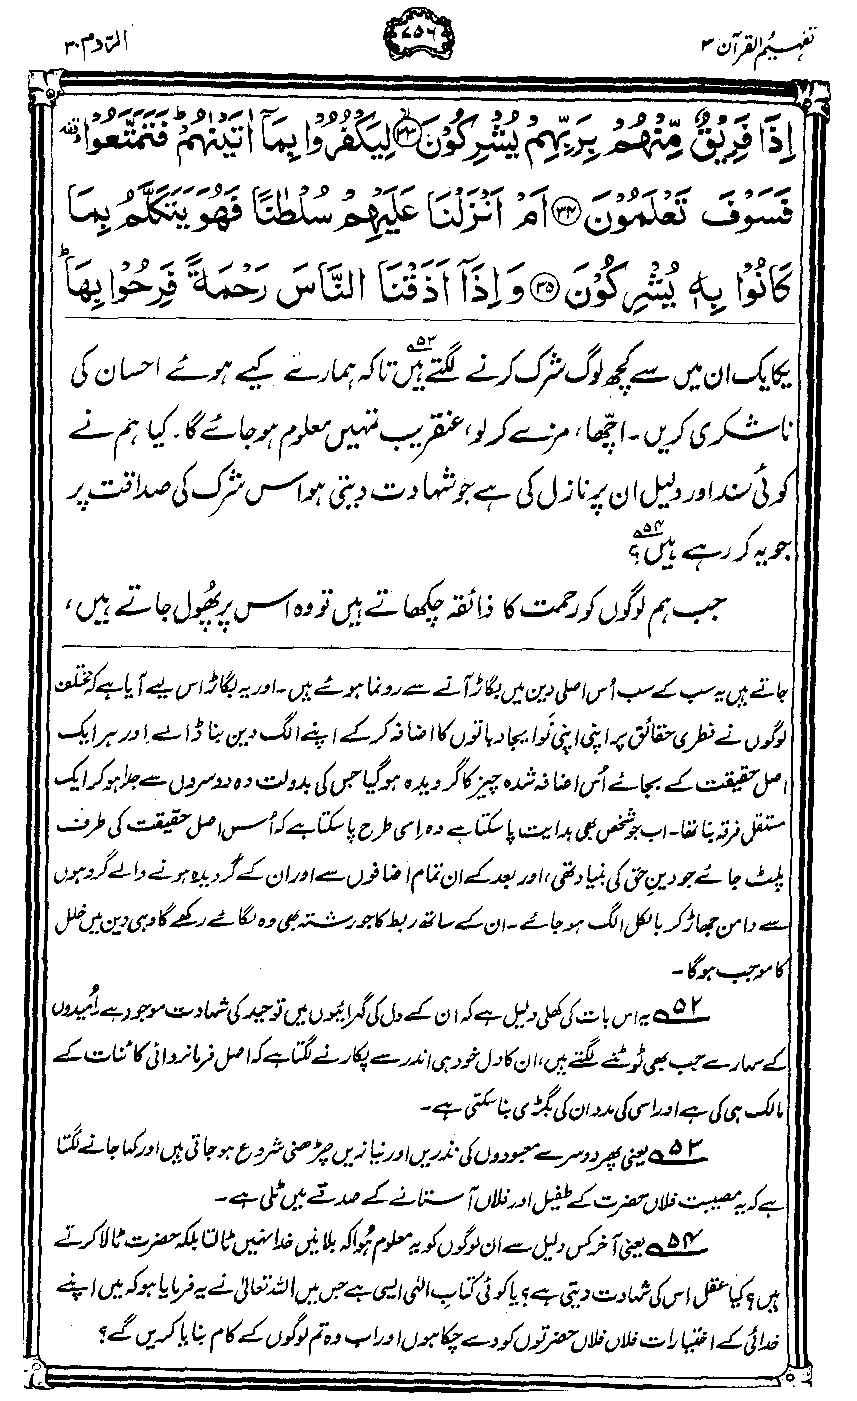 تفہیم القرآن ۳
۷۵۶
الروم ۳۰
اِذَا فَرِیْقٌ مِّنْهُمْ بِرَبِّهِمْ یُشْرِكُوْنَ ﴿۳۳﴾ لِیَكْفُرُوْا بِمَاۤ اٰتَیْنٰهُمْ ؕ فَتَمَتَّعُوْا ۥ وقفة
فَسَوْفَ تَعْلَمُوْنَ ﴿۳۴﴾ اَمْ اَنْزَلْنَا عَلَیْهِمْ سُلْطٰنًا فَهُوَ یَتَكَلَّمُ بِمَا
كَانُوْا بِهٖ یُشْرِكُوْنَ ﴿۳۵﴾ وَ اِذَاۤ اَذَقْنَا النَّاسَ رَحْمَةً فَرِحُوْا بِهَا ؕ
یکایک ان میں سے کچھ لوگ شرک کرنے لگتے ہیں۵۳ تاکہ ہمارے کیے ہوئے احسان کی
ناشکری کریں۔ اچھا، مزے کر لو، عنقریب تمہیں معلوم ہو جائے گا۔ کیا ہم نے
کوئی سند اور دلیل ان پر نازل کی ہے جو شہادت دیتی ہو اس شرک کی صداقت پر
جو یہ کر رہے ہیں؟۵۴
جب ہم لوگوں کو رحمت کا ذائقہ چکھاتے ہیں تو وہ اس پر پھول جاتے ہیں،
جاتے ہیں یہ سب کے سب اُس اصلی دین میں بگاڑ آنے سے رونما ہوئے ہیں۔ اور یہ بگاڑ اس لیے آیا ہے کہ مختلف
لوگوں نے فطری حقائق پر اپنی اپنی نَو ایجاد باتوں کا اضافہ کر کے اپنے الگ دین بنا ڈالے اور ہر ایک
اصل حقیقت کے بجائے اُس اضافہ شدہ چیز کا گرویدہ ہو گیا جس کی بدولت وہ دوسروں سے جدا ہو کر ایک
مستقل فرقہ بنا تھا۔ اب جو شخص بھی ہدایت پا سکتا ہے وہ اِسی طرح پا سکتا ہے کہ اُس اصل حقیقت کی طرف
پلٹ جائے جو دینِ حق کی بنیاد تھی، اور بعد کے ان تمام اضافوں سے اور ان کے گرویدہ ہونے والے گروہوں
سے دامن جھاڑ کر بالکل الگ ہو جائے۔ ان کے ساتھ ربط کا جو رشتہ بھی وہ لگائے رکھے گا وہی دین میں خلل
کا موجب ہوگا۔
۵۲ یہ اس بات کی کھلی دلیل ہے کہ ان کے دل کی گہرائیوں میں توحید کی شہادت موجود ہے اُمیدوں
کے سہارے جب بھی ٹوٹنے لگتے ہیں، ان کا دل خود ہی اندر سے پکارنے لگتا ہے کہ اصل فرمانروائی کائنات کے
مالک ہی کی ہے اور اسی کی مدد ان کی بگڑی بنا سکتی ہے۔
۵۳ یعنی پھر دوسرے معبودوں کی نذریں اور نیازیں چڑھنی شروع ہو جاتی ہیں اور کہا جانے لگتا
ہے کہ یہ مصیبت فلاں حضرت کے طفیل اور فلاں آستانے کے صدقے میں ٹلی ہے۔
۵۴ یعنی آخر کس دلیل سے ان لوگوں کو یہ معلوم ہُوا کہ بلائیں خدا نہیں ٹالتا بلکہ حضرت ٹالا کرتے
ہیں؟ کیا عقل اس کی شہادت دیتی ہے؟ یا کوئی کتاب الٰہی ایسی ہے جس میں اللہ تعالیٰ نے یہ فرمایا ہو کہ میں اپنے
خدائی کے اختیارات فلاں فلاں حضرتوں کو دے چکا ہوں اور اب وہ تم لوگوں کے کام بنایا کریں گے؟